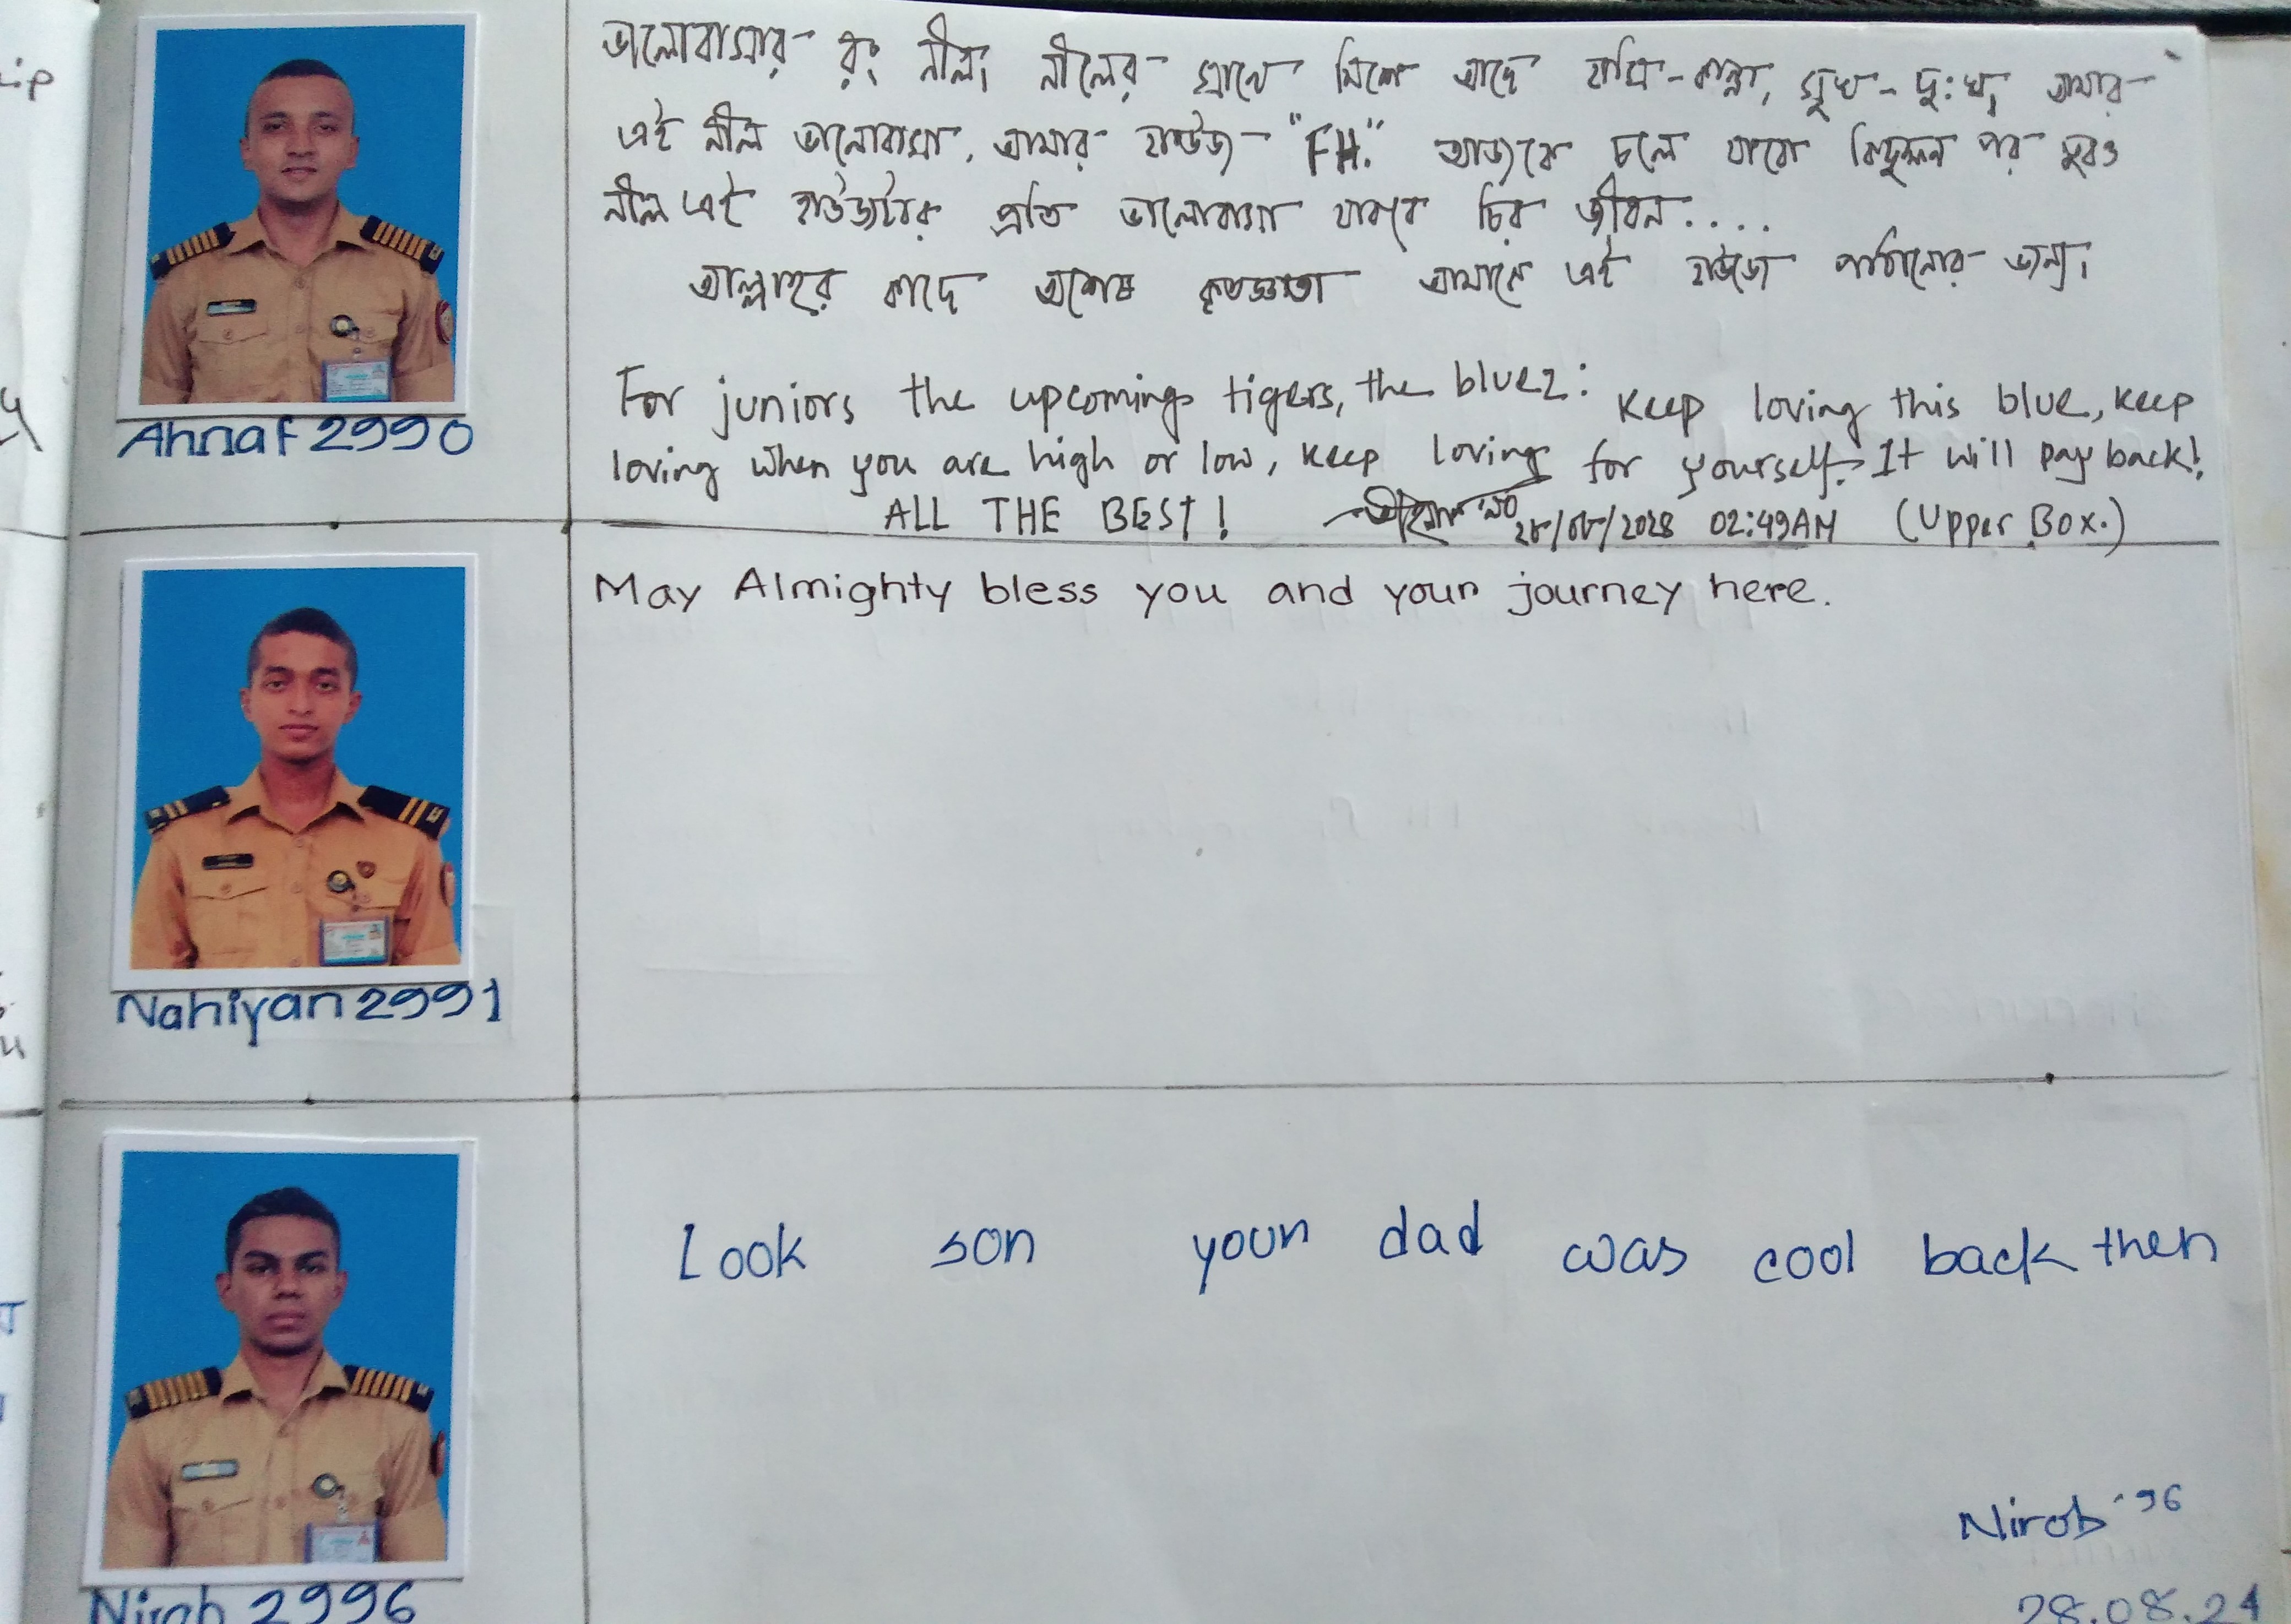 ভালোবাসার রং নীল। নীলের সাথে মিশে আছে হাসি-কান্না, সুখ-দুঃখ, আমার
এই নীল ভালোবাসা, আমার হাউজ "FH." আজকে চলে যাবো কিছুক্ষন পর
নীল এই হাউজটার প্রতি ভালোবাসা থাকবে চির জীবন....
আল্লাহর কাছে অশেষ কৃতজ্ঞতা আমাকে এই হাউজে পাঠানোর জন্য।
For juniors the upcoming tigers, the bluez: Keep loving this blue, keep
loving when you are high or low, keep loving for yourself. It will pay back!
ALL THE BEST! 02:49AM (Upper Box.)
Ahnaf 2990
May Almighty bless you and your journey here.
Nahiyan 2991
Look son your dad was cool back then
Nirob '96
28.08.24
Nirob 2996